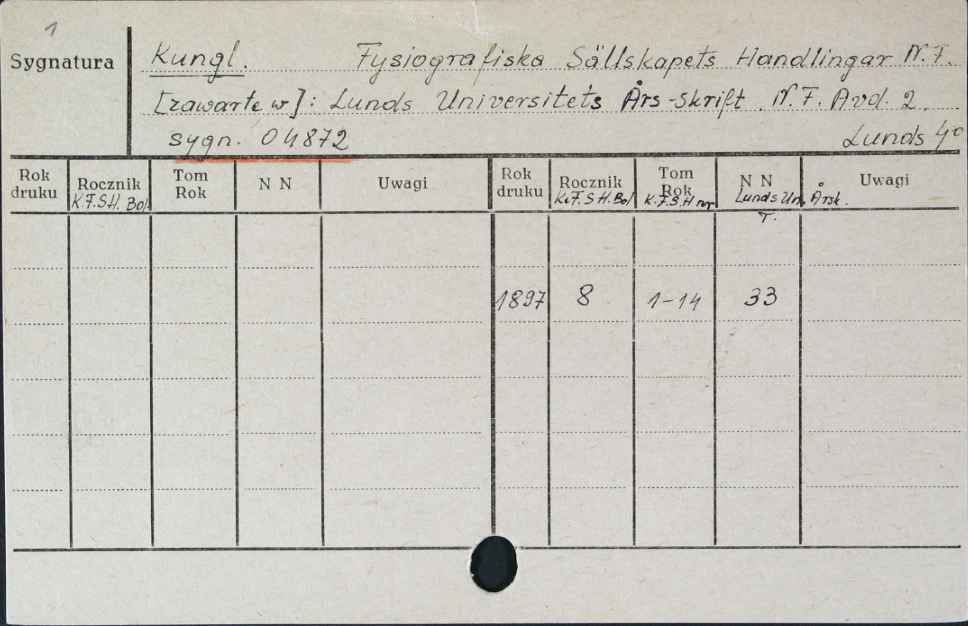 1
Sygnatura
Kungl. Fysiografiska Sällskapets Handlingar N.F.
[zawarte w]: Lunds Universitets Års-skrift. N.F. Avd. 2.
sygn. 04872 Lunds 4°
Rok druku Rocznik K.F.S.H. Bd Tom Rok N N Uwagi Rok druku Rocznik K.F.S.H. Bd Tom Rok K.F.S.H nr N N Lunds Un. Årsk. T. Uwagi
1897 8 1-14 33